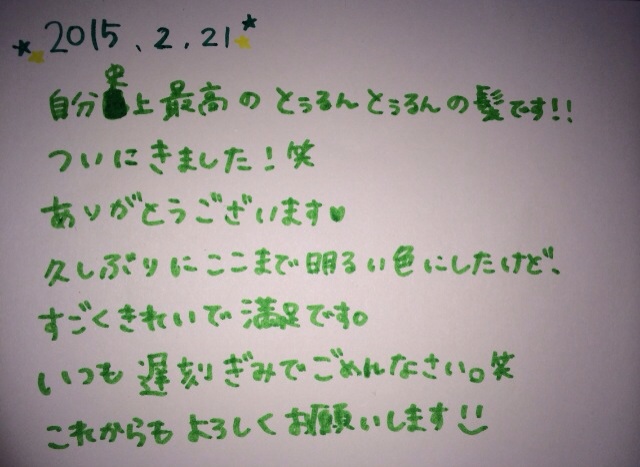 ★2015.2.21★
自分史上最高のとぅるんとぅるんの髪です!!
ついにきました!笑
ありがとうございます♥
久しぶりにここまで明るい色にしたけど、
すごくきれいで満足です。
いつも遅刻ぎみでごめんなさい。笑
これからもよろしくお願いします